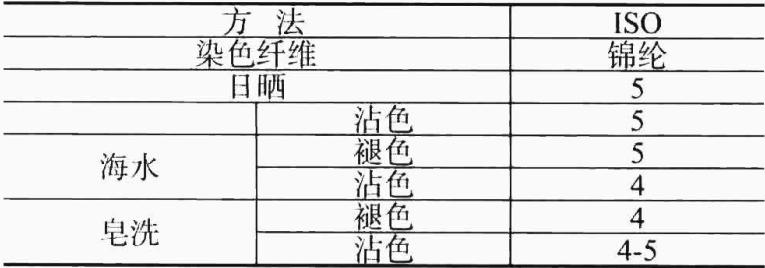 方 法 ISO
染色纤维 锦纶
日晒 5
沾色 5
海水 褪色 5
沾色 4
皂洗 褪色 4
沾色 4-5